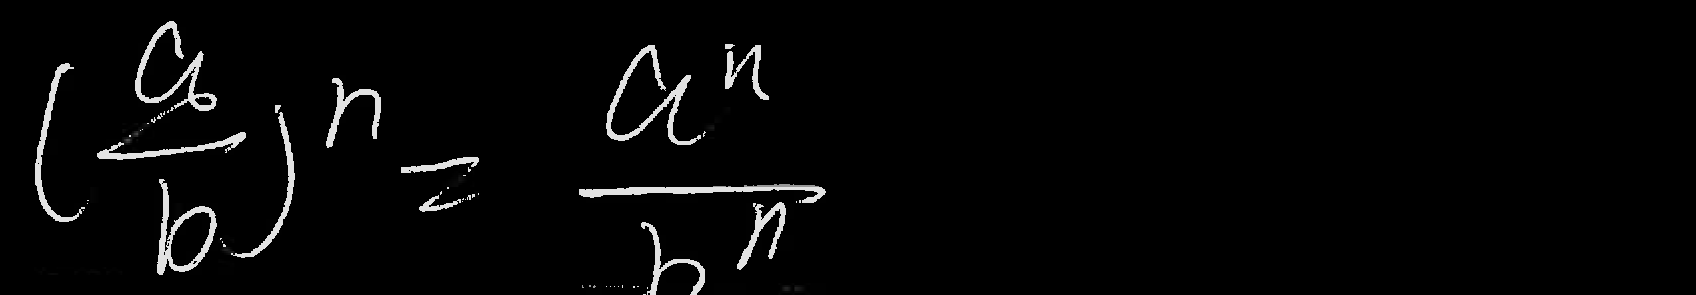 (a/b)^n = a^n/b^n